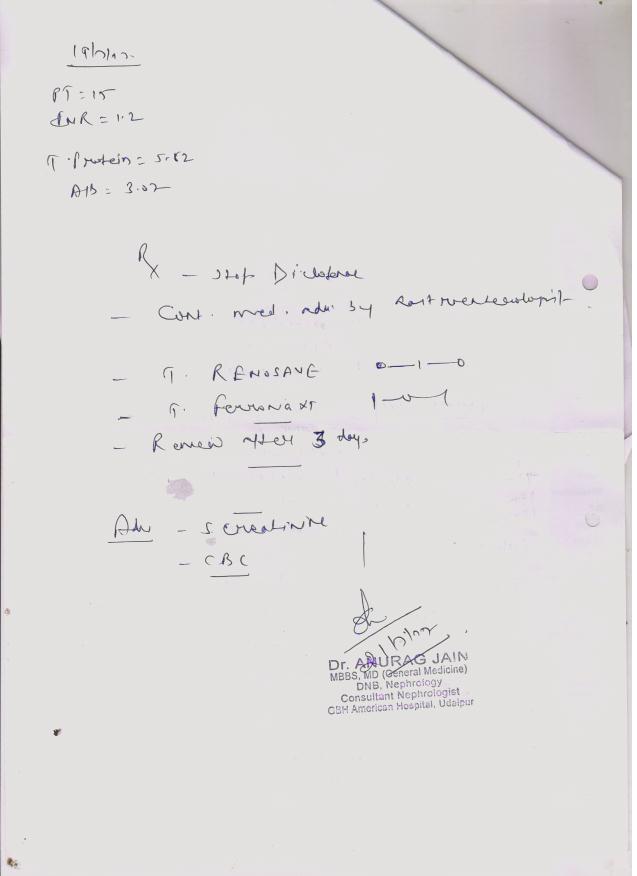 PT = 15
INR = 1.2
T. Protein = 5.82
Alb = 3.02
Rx - stop Diclofenac
- Cont. med. adv. by Gastroenterologist.
- T. RENOSAVE 0-1-0
- T. Ferronia XT 1-0-1
- Review after 3 days
Adv - S. creatinine
- CBC
Dr. ANURAG JAIN
MBBS, MD (General Medicine)
DNB, Nephrology
Consultant Nephrologist
CBH American Hospital, Udaipur